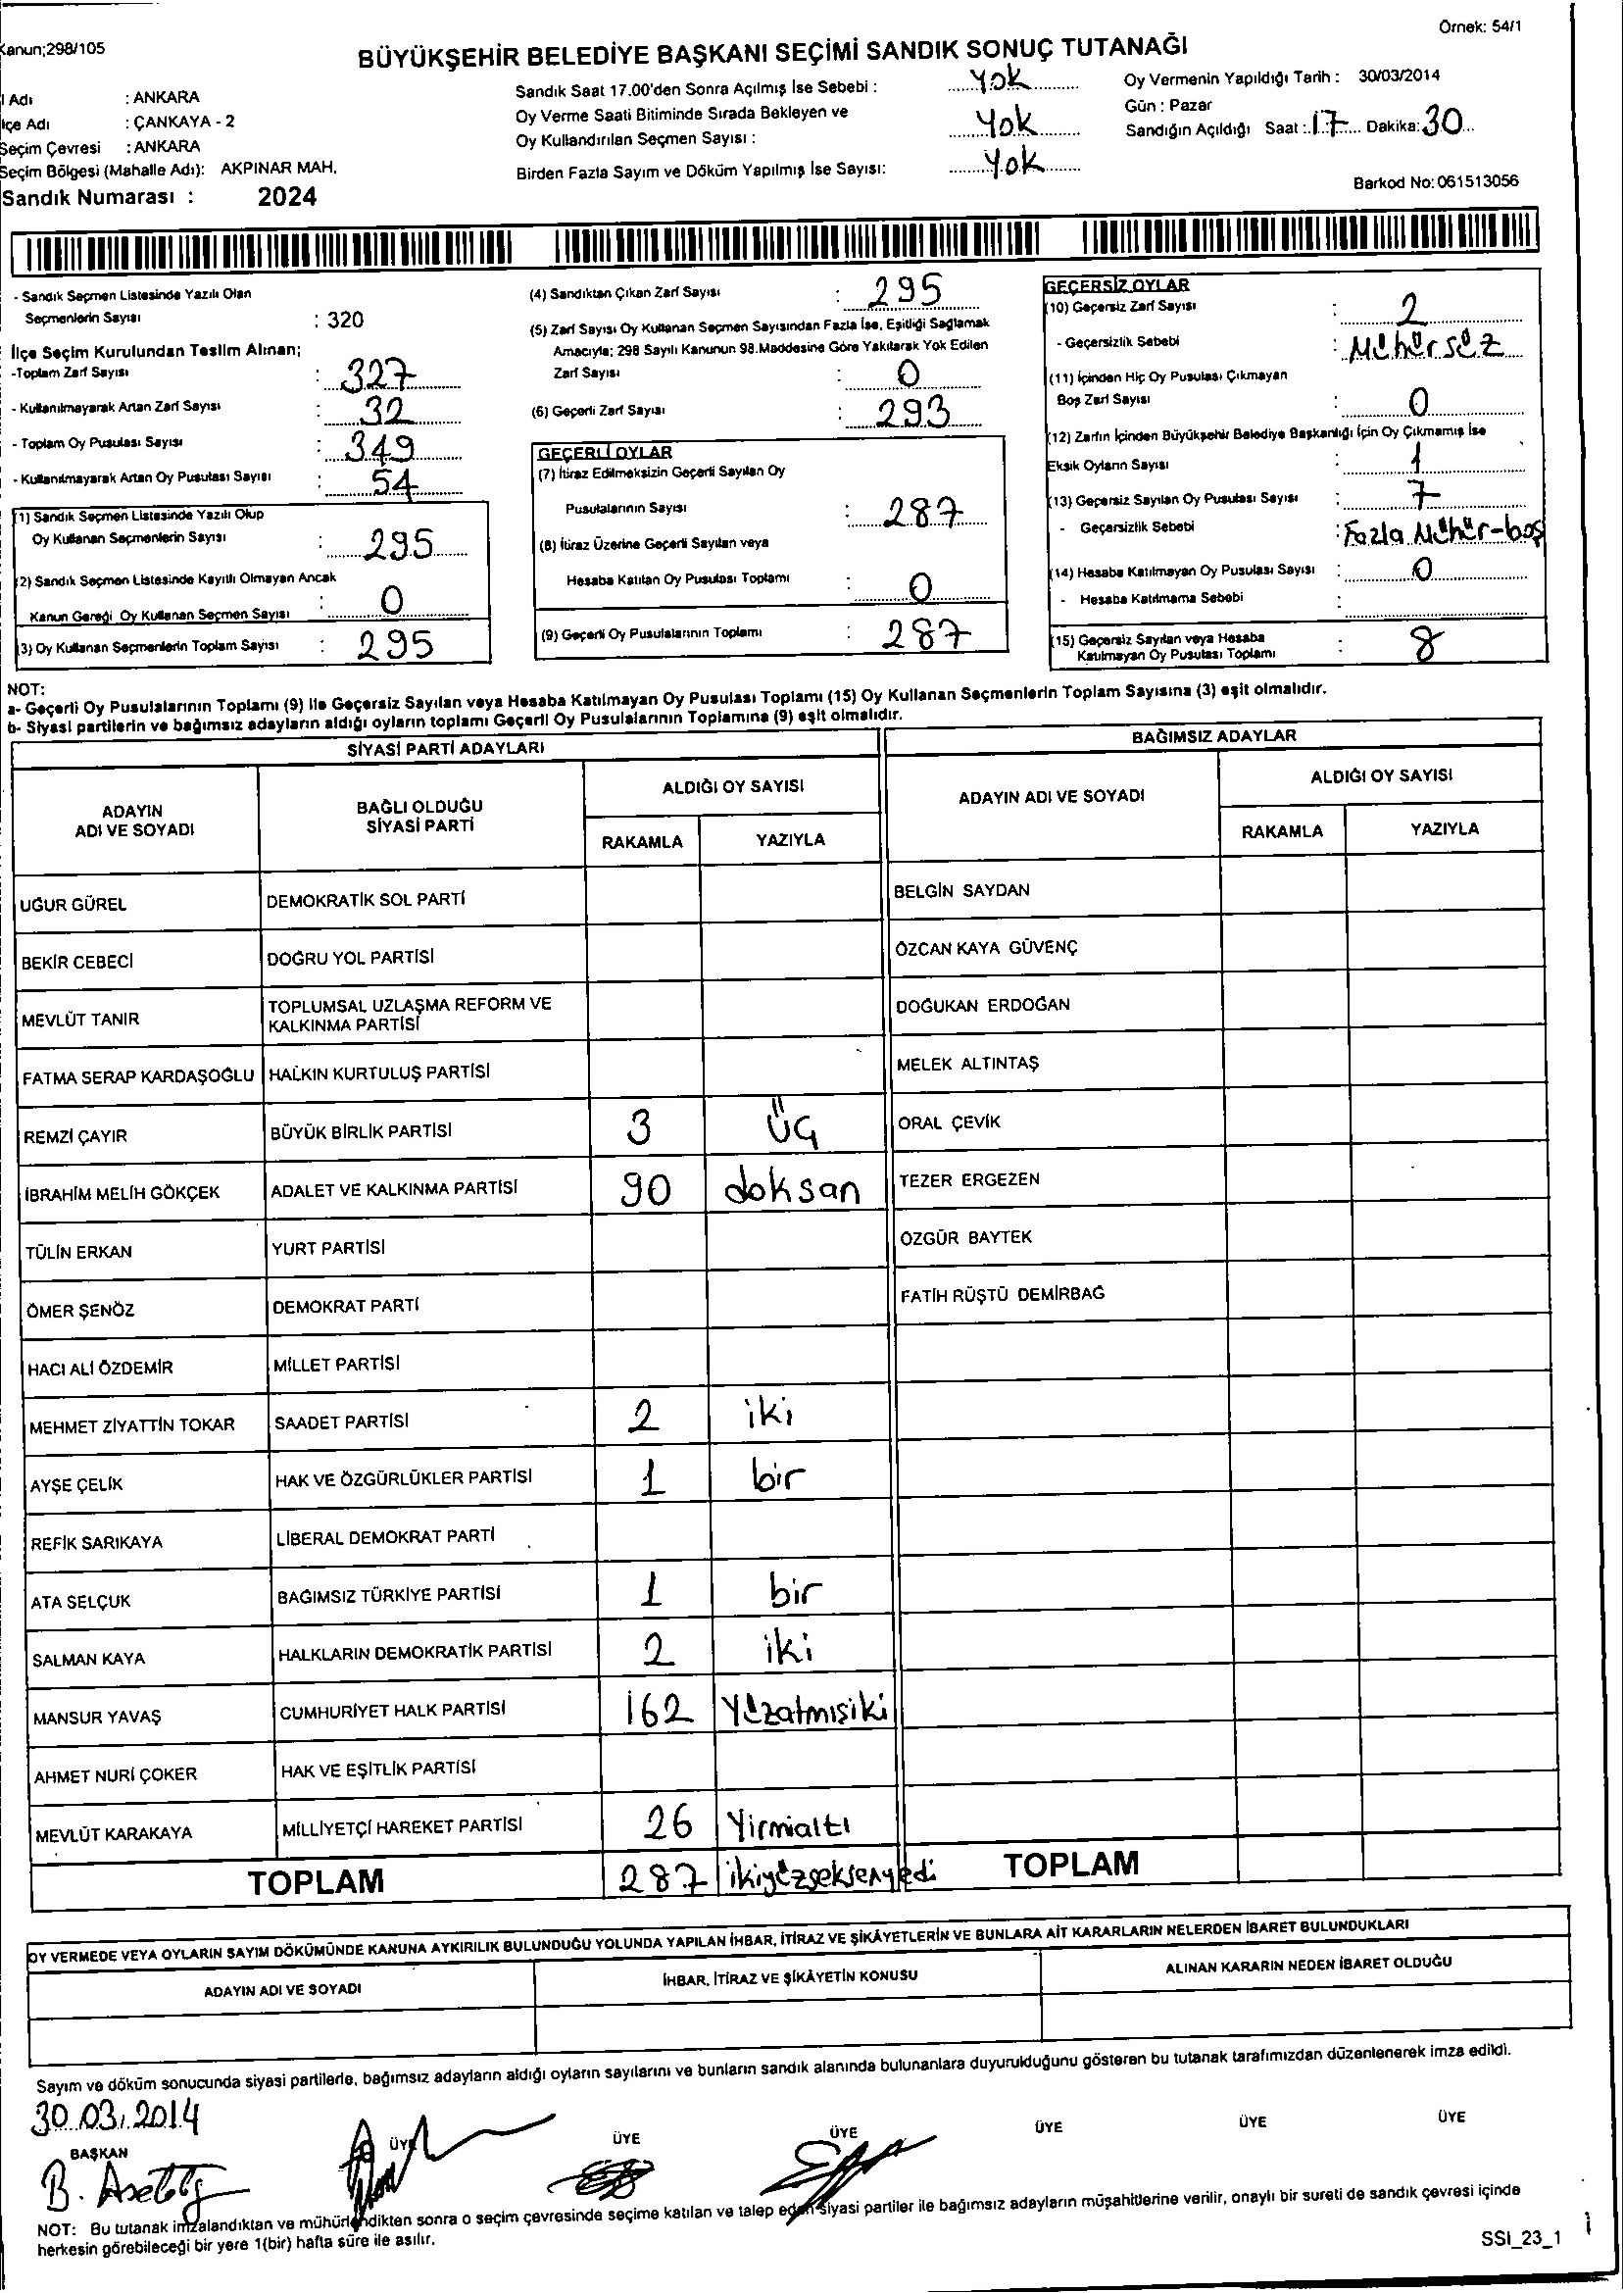 Kanun;298/105
Örnek: 54/1
BÜYÜKŞEHİR BELEDİYE BAŞKANI SEÇİMİ SANDIK SONUÇ TUTANAĞI
İl Adı : ANKARA
İlçe Adı : ÇANKAYA - 2
Seçim Çevresi : ANKARA
Seçim Bölgesi (Mahalle Adı): AKPINAR MAH.
Sandık Numarası : 2024
Sandık Saat 17.00'den Sonra Açılmış İse Sebebi : Yok
Oy Verme Saati Bitiminde Sırada Bekleyen ve
Oy Kullandırılan Seçmen Sayısı : Yok
Birden Fazla Sayım ve Döküm Yapılmış İse Sayısı: Yok
Oy Vermenin Yapıldığı Tarih : 30/03/2014
Gün : Pazar
Sandığın Açıldığı Saat : 17 Dakika: 30
Barkod No: 061513056
- Sandık Seçmen Listesinde Yazılı Olan
Seçmenlerin Sayısı : 320
İlçe Seçim Kurulundan Teslim Alınan;
-Toplam Zarf Sayısı : 327
- Kullanılmayarak Artan Zarf Sayısı : 32
- Toplam Oy Pusulası Sayısı : 349
- Kullanılmayarak Artan Oy Pusulası Sayısı : 54
(1) Sandık Seçmen Listesinde Yazılı Olup
Oy Kullanan Seçmenlerin Sayısı : 295
(2) Sandık Seçmen Listesinde Kayıtlı Olmayan Ancak
Kanun Gereği Oy Kullanan Seçmen Sayısı : 0
(3) Oy Kullanan Seçmenlerin Toplam Sayısı : 295
(4) Sandıktan Çıkan Zarf Sayısı : 295
(5) Zarf Sayısı Oy Kullanan Seçmen Sayısından Fazla İse, Eşitliği Sağlamak
Amacıyla; 298 Sayılı Kanunun 98.Maddesine Göre Yakılarak Yok Edilen
Zarf Sayısı : 0
(6) Geçerli Zarf Sayısı : 293
GEÇERLİ OYLAR
(7) İtiraz Edilmeksizin Geçerli Sayılan Oy
Pusulalarının Sayısı : 287
(8) İtiraz Üzerine Geçerli Sayılan veya
Hesaba Katılan Oy Pusulası Toplamı : 0
(9) Geçerli Oy Pusulalarının Toplamı : 287
GEÇERSİZ OYLAR
(10) Geçersiz Zarf Sayısı : 2
- Geçersizlik Sebebi : Mühürsüz
(11) İçinden Hiç Oy Pusulası Çıkmayan
Boş Zarf Sayısı : 0
(12) Zarfın İçinden Büyükşehir Belediye Başkanlığı İçin Oy Çıkmamış İse
Eksik Oyların Sayısı : 1
(13) Geçersiz Sayılan Oy Pusulası Sayısı : 7
- Geçersizlik Sebebi : Fazla Mühür-boş
(14) Hesaba Katılmayan Oy Pusulası Sayısı : 0
- Hesaba Katılmama Sebebi :
(15) Geçersiz Sayılan veya Hesaba
Katılmayan Oy Pusulası Toplamı : 8
NOT:
a- Geçerli Oy Pusulalarının Toplamı (9) ile Geçersiz Sayılan veya Hesaba Katılmayan Oy Pusulası Toplamı (15) Oy Kullanan Seçmenlerin Toplam Sayısına (3) eşit olmalıdır.
b- Siyasi partilerin ve bağımsız adayların aldığı oyların toplamı Geçerli Oy Pusulalarının Toplamına (9) eşit olmalıdır.
SİYASİ PARTİ ADAYLARI
BAĞIMSIZ ADAYLAR
ADAYIN
ADI VE SOYADI
BAĞLI OLDUĞU
SİYASİ PARTİ
ALDIĞI OY SAYISI
RAKAMLA YAZIYLA
ADAYIN ADI VE SOYADI
ALDIĞI OY SAYISI
RAKAMLA YAZIYLA
UĞUR GÜREL DEMOKRATİK SOL PARTİ BELGİN SAYDAN
BEKİR CEBECİ DOĞRU YOL PARTİSİ ÖZCAN KAYA GÜVENÇ
MEVLÜT TANIR TOPLUMSAL UZLAŞMA REFORM VE
KALKINMA PARTİSİ DOĞUKAN ERDOĞAN
FATMA SERAP KARDAŞOĞLU HALKIN KURTULUŞ PARTİSİ MELEK ALTINTAŞ
REMZİ ÇAYIR BÜYÜK BİRLİK PARTİSİ 3 Üç ORAL ÇEVİK
İBRAHİM MELİH GÖKÇEK ADALET VE KALKINMA PARTİSİ 90 doksan TEZER ERGEZEN
TÜLİN ERKAN YURT PARTİSİ ÖZGÜR BAYTEK
ÖMER ŞENÖZ DEMOKRAT PARTİ FATİH RÜŞTÜ DEMİRBAĞ
HACI ALİ ÖZDEMİR MİLLET PARTİSİ
MEHMET ZİYATTİN TOKAR SAADET PARTİSİ 2 iki
AYŞE ÇELİK HAK VE ÖZGÜRLÜKLER PARTİSİ 1 bir
REFİK SARIKAYA LİBERAL DEMOKRAT PARTİ
ATA SELÇUK BAĞIMSIZ TÜRKİYE PARTİSİ 1 bir
SALMAN KAYA HALKLARIN DEMOKRATİK PARTİSİ 2 iki
MANSUR YAVAŞ CUMHURİYET HALK PARTİSİ 162 Yüzatmışiki
AHMET NURİ ÇOKER HAK VE EŞİTLİK PARTİSİ
MEVLÜT KARAKAYA MİLLİYETÇİ HAREKET PARTİSİ 26 Yirmialtı
TOPLAM 287 ikiyüzseksenyedi TOPLAM
OY VERMEDE VEYA OYLARIN SAYIM DÖKÜMÜNDE KANUNA AYKIRILIK BULUNDUĞU YOLUNDA YAPILAN İHBAR, İTİRAZ VE ŞİKÂYETLERİN VE BUNLARA AİT KARARLARIN NELERDEN İBARET BULUNDUKLARI
ADAYIN ADI VE SOYADI İHBAR, İTİRAZ VE ŞİKÂYETİN KONUSU ALINAN KARARIN NEDEN İBARET OLDUĞU
Sayım ve döküm sonucunda siyasi partilerle, bağımsız adayların aldığı oyların sayılarını ve bunların sandık alanında bulunanlara duyurulduğunu gösteren bu tutanak tarafımızdan düzenlenerek imza edildi.
30.03.2014
BAŞKAN ÜYE ÜYE ÜYE ÜYE ÜYE ÜYE
NOT: Bu tutanak imzalandıktan ve mühürlendikten sonra o seçim çevresinde seçime katılan ve talep eden siyasi partiler ile bağımsız adayların müşahitlerine verilir, onaylı bir sureti de sandık çevresi içinde
herkesin görebileceği bir yere 1(bir) hafta süre ile asılır.
SSI_23_1